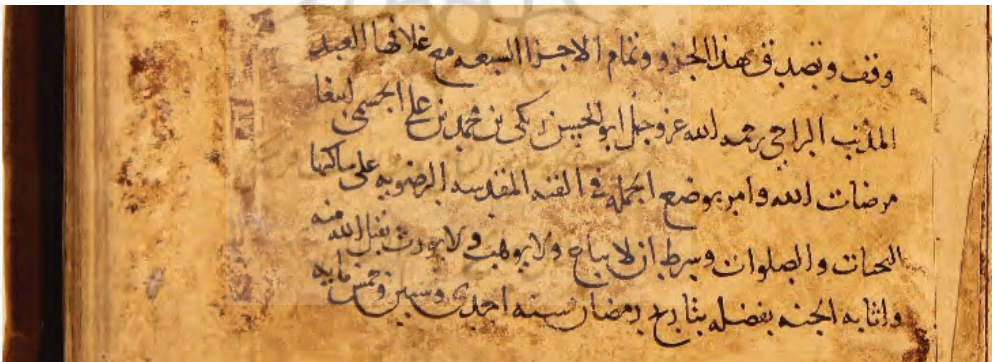 وقف وتصدق بهذا الجزو وتمام الاجزا السبعه مع غلافها العبد
المذنب الراجي رحمه الله عز وجل ابو الحسن بن محمد بن علي ابتغا
مرضات الله وامر بوضع الجمله في القبه المقدسه الرضويه على ساكنها
التحيات والصلوات وشرط ان لا يباع ولا يوهب ولا يورث تقبل الله منه
واثابه الجنه بفضله بتاريخ رمضان سنه احدى وستين وخمس مايه